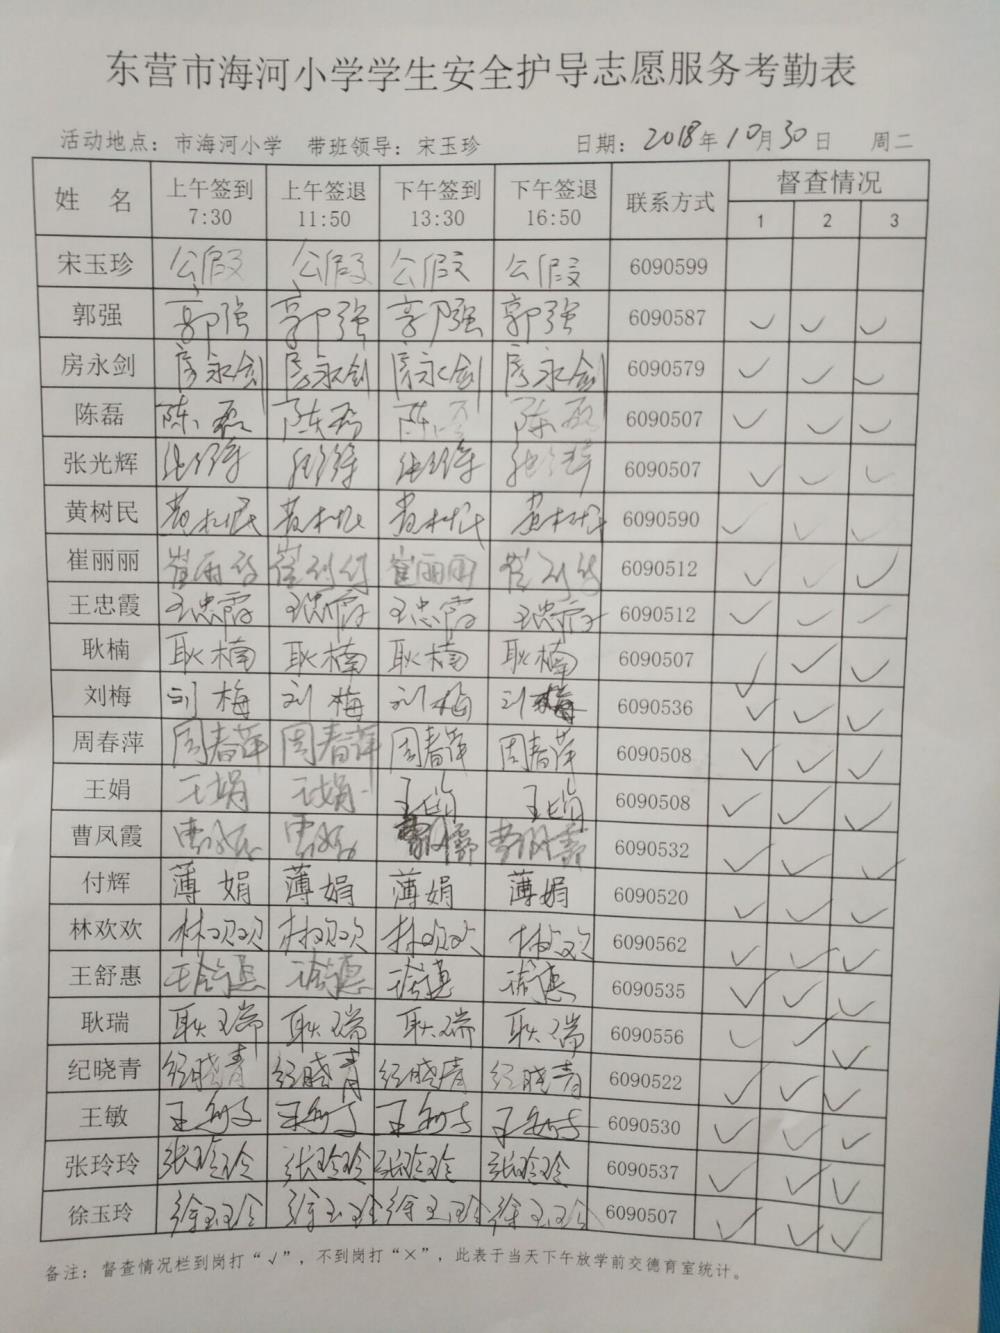 东营市海河小学学生安全护导志愿服务考勤表
活动地点：市海河小学 带班领导：宋玉珍 日期：2018年10月30日 周二
姓 名 上午签到 7:30 上午签退 11:50 下午签到 13:30 下午签退 16:50 联系方式 督查情况 1 2 3
宋玉珍 公假 公假 公假 公假 6090599
郭强 郭强 郭强 郭强 郭强 6090587 ✓ ✓ ✓
房永剑 房永剑 房永剑 房永剑 房永剑 6090579 ✓ ✓ ✓
陈磊 陈磊 陈磊 陈磊 陈磊 6090507 ✓ ✓ ✓
张光辉 6090507 ✓ ✓ ✓
黄树民 黄树民 黄树民 黄树民 黄树民 6090590 ✓ ✓ ✓
崔丽丽 崔丽丽 崔丽丽 崔丽丽 崔丽丽 6090512 ✓ ✓ ✓
王忠霞 王忠霞 王忠霞 王忠霞 王忠霞 6090512 ✓ ✓ ✓
耿楠 耿楠 耿楠 耿楠 耿楠 6090507 ✓ ✓ ✓
刘梅 刘梅 刘梅 刘梅 刘梅 6090536 ✓ ✓ ✓
周春萍 周春萍 周春萍 周春萍 周春萍 6090508 ✓ ✓ ✓
王娟 王娟 王娟 王娟 王娟 6090508 ✓ ✓ ✓
曹凤霞 曹凤霞 曹凤霞 曹凤霞 曹凤霞 6090532 ✓ ✓ ✓
付辉 薄娟 薄娟 薄娟 薄娟 6090520 ✓ ✓ ✓
林欢欢 林欢欢 林欢欢 林欢欢 林欢欢 6090562 ✓ ✓ ✓
王舒惠 王舒惠 王舒惠 王舒惠 王舒惠 6090535 ✓ ✓ ✓
耿瑞 耿瑞 耿瑞 耿瑞 耿瑞 6090556 ✓ ✓ ✓
纪晓青 纪晓青 纪晓青 纪晓青 纪晓青 6090522 ✓ ✓ ✓
王敏 王敏 王敏 王敏 王敏 6090530 ✓ ✓ ✓
张玲玲 张玲玲 张玲玲 张玲玲 张玲玲 6090537 ✓ ✓ ✓
徐玉玲 徐玉玲 徐玉玲 徐玉玲 徐玉玲 6090507 ✓ ✓ ✓
备注：督查情况栏到岗打“√”，不到岗打“×”，此表于当天下午放学前交德育室统计。